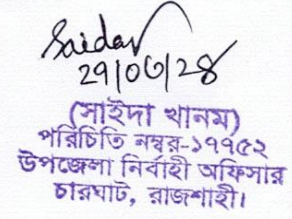 Saida
29/06/24
(সাইদা খানম)
পরিচিতি নম্বর-১৭৭৫২
উপজেলা নির্বাহী অফিসার
চারঘাট, রাজশাহী।